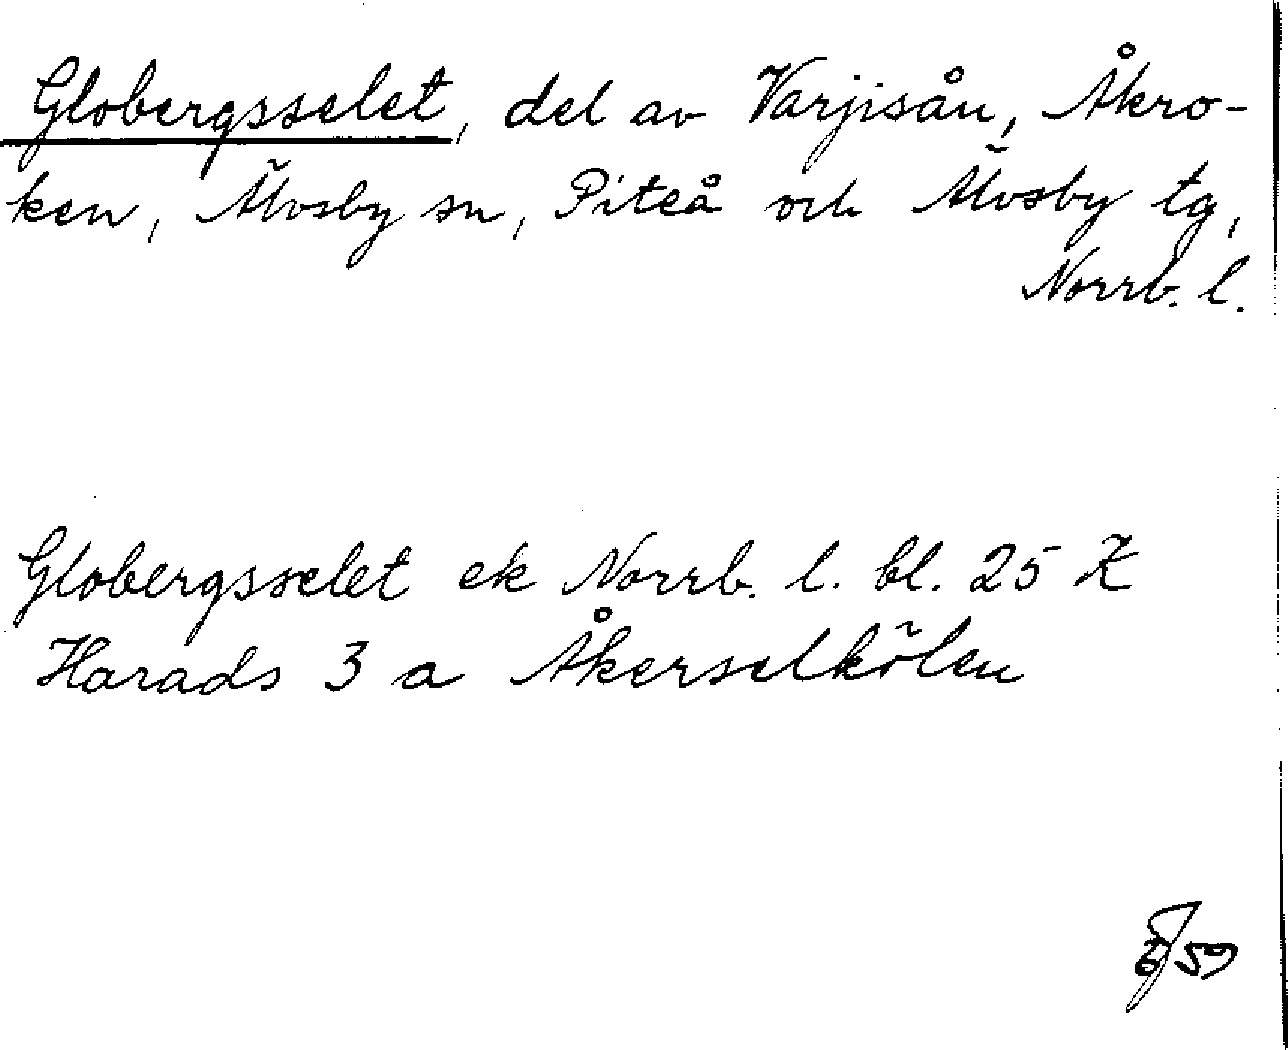 Globergsselet, del av Varjisån, Åkro-
ken, Älvsby sn, Piteå och Älvsby tg,
Norrb. l.
Globergsselet ek Norrb. l. bl. 25 K
Harads 3 a Åkerselkölen
59